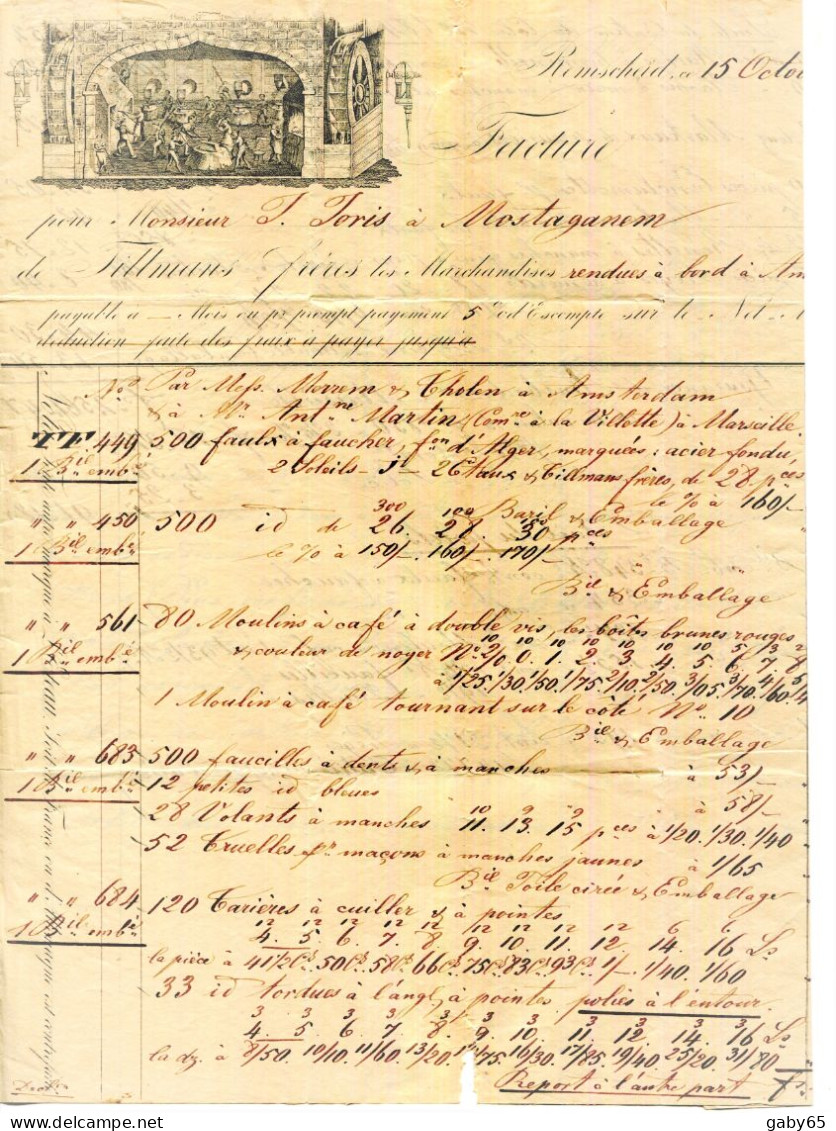 Remscheid, à 15 Octo
Facture
pour Monsieur T. Joris à Mostaganem
de Tillmans frères les Marchandises rendues à bord à Am
payable à — Mois ou pr prompt payement 5 % d'Escompte sur le Net
déduction faite des faux à payer jusqu'à
Nos Par Mess. Morrem & Tholen à Amsterdam
& à Mr. Antne Martin (Comre à la Villette) à Marseille.
TF. 449 500 faulx à faucher, fon d'Alger, marquées: acier fondu,
1 Bil embé 2 Soleils - jt - 2 Etaux & Tidmans frères, de 28 pces
le % à 160/-
" " 450 500 id de 300 26. 100 28. 150 30 pces Baril & Emballage
1 Bil embé le % à 150/-. 160/-. 170/-
Bil & Emballage
" " 561 80 Moulins à café à double vis, les boîts brunes rouges
10 10 10 10 10 10 10 5 3 2
1 Bil embé & couleur de noyer No 2/0 0. 1. 2. 3. 4. 5. 6. 7. 8
à 1/25. 1/30. 1/50. 1/75. 2/10. 2/50. 3/05. 3/70. 4/60. 5/4
1 Moulin à café tournant sur le côté No. 10
Bil & Emballage
" " 683 500 faucilles à dents & à manches à 53/-
1 Bil embé 12 petites id bleues à 58/-
28 Volants à manches 10 11. 9 13. 9 15 pces à 1/20. 1/30. 1/40
52 Truelles pr maçons à manches jaunes à 1/65
Bil Toile cirée & Emballage
" " 684 120 Tarières à cuiller & à pointes
1 Bil embé 12 12 12 12 12 12 12 12 12 6 6
4. 5. 6. 7. 8. 9. 10. 11. 12. 14. 16 Ls
la pièce à 41 1/2 cs. 50 cs. 58 cs. 66 cs. 75 cs. 83 cs. 93 cs. 1/-. 1/40. 1/60
33 id tordues à l'angl. à pointes polies à l'entour.
3 3 3 3 3 3 3 3 3 3 3
4. 5 6. 7. 8. 9. 10. 11. 12. 14. 16 Ls
la dz. à 8/50. 10/40. 11/60. 13/20. 75. 16/30. 17/85. 19/40. 25/20. 31/80
Report à l'autre part Frs
gaby65